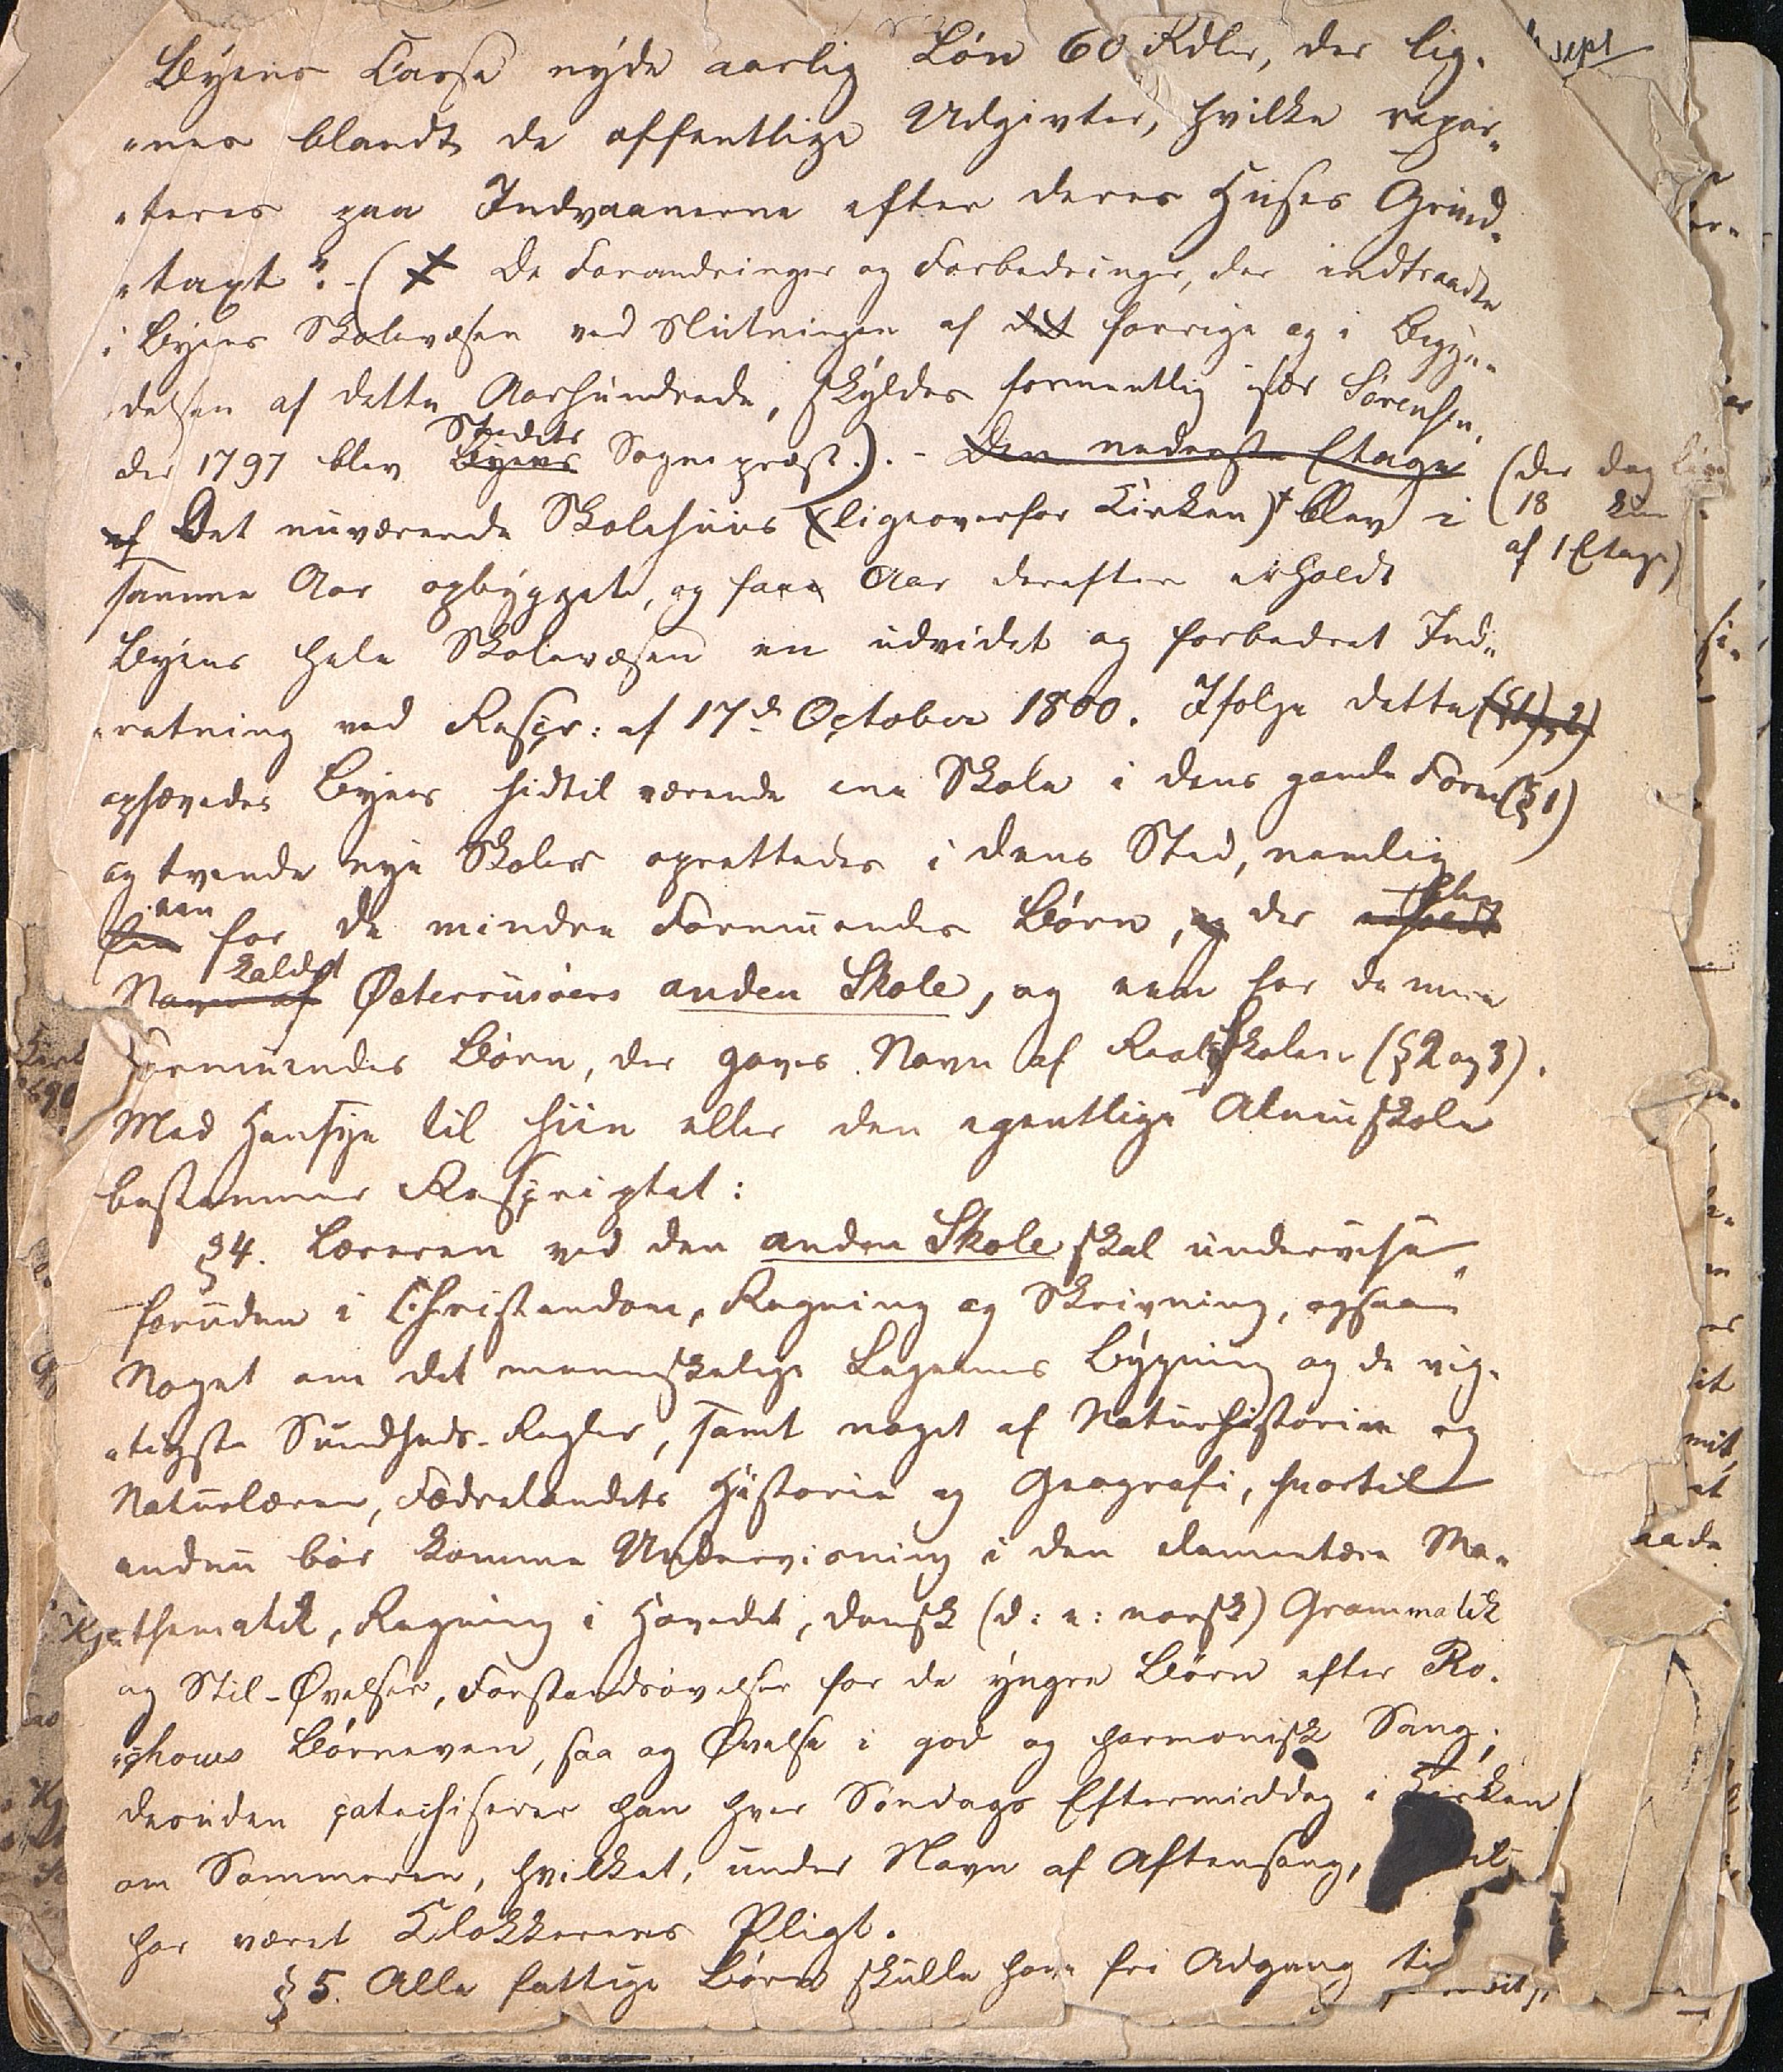 Byens Casse nyde aarlig Løn 60 Rdlr, der lig-
"nes blandt de offentlige Udgivter, hvilke repar-
"teres paa Indvaanerne efter deres Huses Grund-
"taxt". - ( De Forandringer og Forbedringer, der indtraadte
i Byens Skolevæsen ved Slutningen af det forrige og i Begyn-
delsen af dette Aarhundrede, skyldes formentlig især Sørensen,
der 1797 blev Byens Stedets Sognepræst.). - Den nederste Etage
af Det nuværende Skolehuus (ligeoverfor Kirken) blev i
(der dog
18
af 1 Etage)
samme Aar opbygget, og faae Aar derefter erholdt
Byens hele Skolevæsen en udvidet og forbedret Ind-
"retning ved Rescr: af 17d October 1800. Ifølge dette
ophævedes Byens hidtil værende ene Skole i dens gamle Form (§1)
og tvende nye Skoler oprettedes i dens Sted, nemlig
een for de mindre Formuendes Børn, og der blev erholdt
Navn af kaldet Østerriisøers anden Skole, og een for de mere
Formuendes Børn, der gaves Navn af Realskolen (§2 og 3).
Med Hensyn til hiin eller den egentlige Almuskole
bestemmer Rescriptet:
§4. Læreren ved den anden Skole skal undervise,
foruden i Christendom, Regning og Skrivning, ogsaa
Noget om det menneskelige Legemes Bygning og de vig-
"tigste Sundheds-Regler, samt noget af Naturhistorien og
Naturlæren, Fædrelandets Historie og Geografi, hvortil
endnu bør komme Undervisning i den elementære Ma-
"thematik, Regning i Hovedet, dansk (d: e: norsk) Grammatik
og Stil-Øvelser, Forstandsøvelser for de yngre Børn efter Ro-
"chows Børneven, saa og Øvelse i god og harmonisk Sang;
desuden catechiserer han hver Søndags Eftermiddag i Kirken
om Sommeren, hvilket, under Navn af Aftensang,
har været Klokkerens Pligt.
§5. Alle fattige Børn skulle have fri Adgang